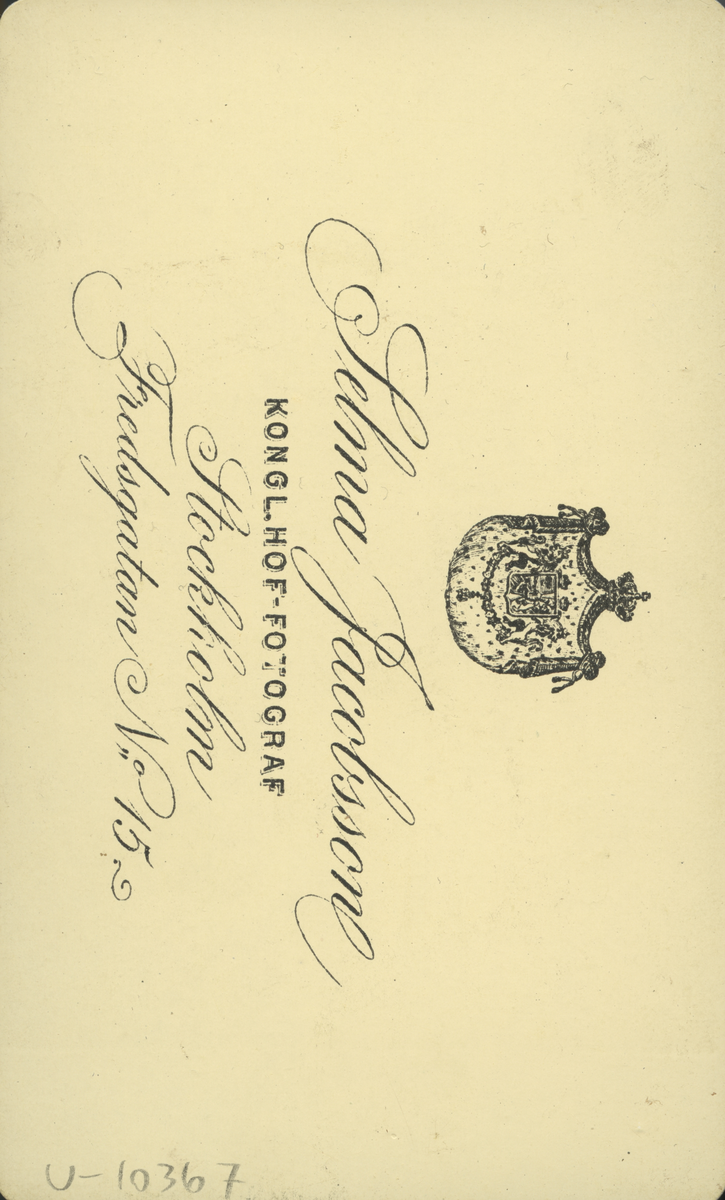 Selma Jacobsson
KONGL. HOF-FOTOGRAF
Stockholm
Fredsgatan No 15.
U-10367